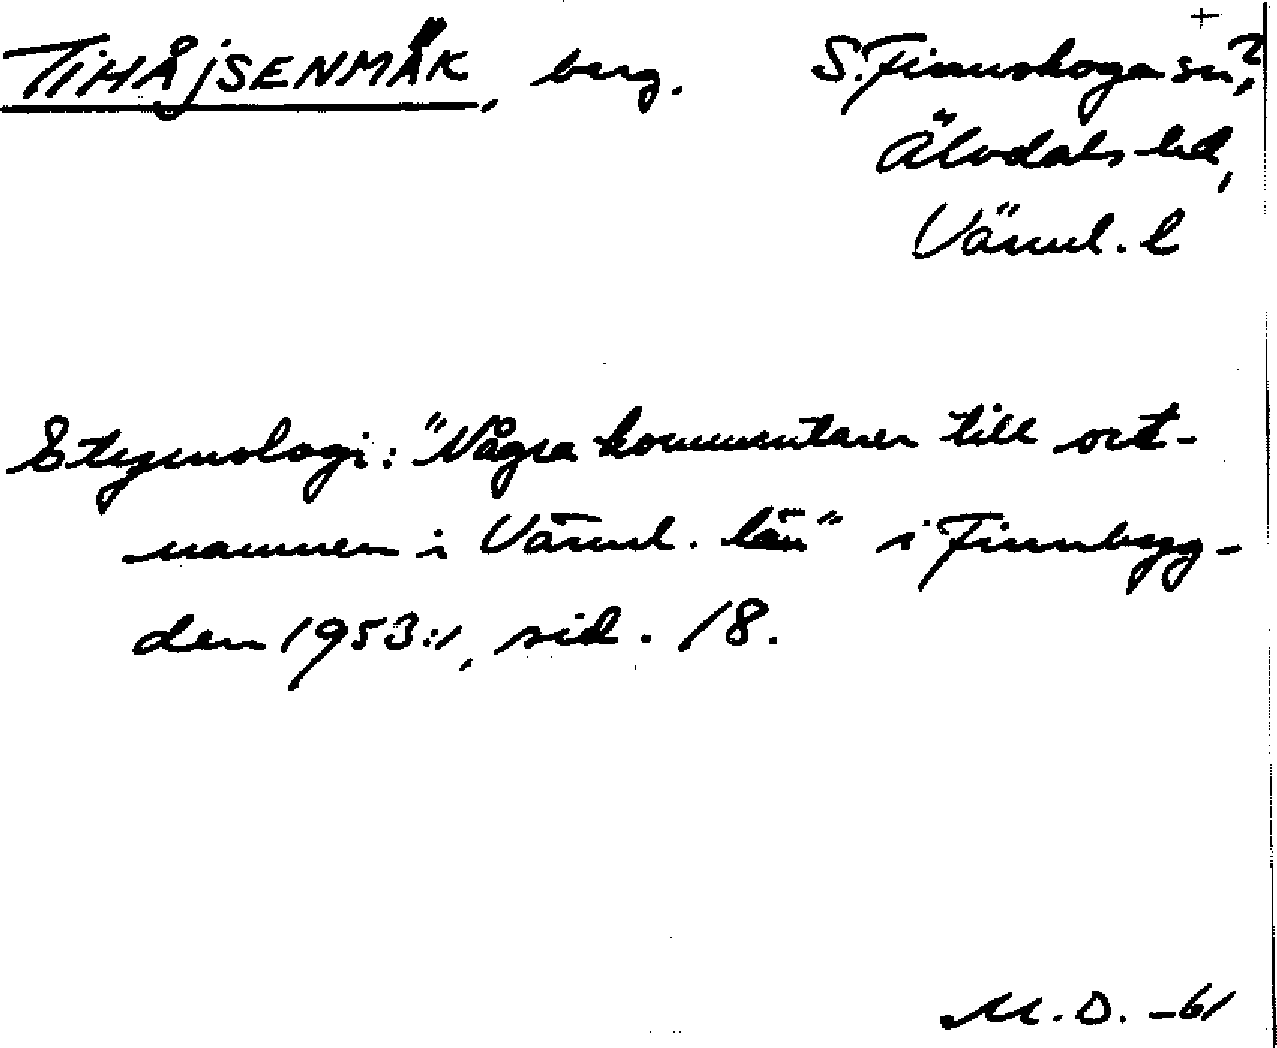 +
TIHÅJSENMÄK, berg. S. Finnskoga sn?,
Älvdals hd,
Värml. l
Etymologi: "Några kommentarer till ort-
namnen i Värml. län" i Finnbyg-
den 1953:1, sid. 18.
M.D. -61